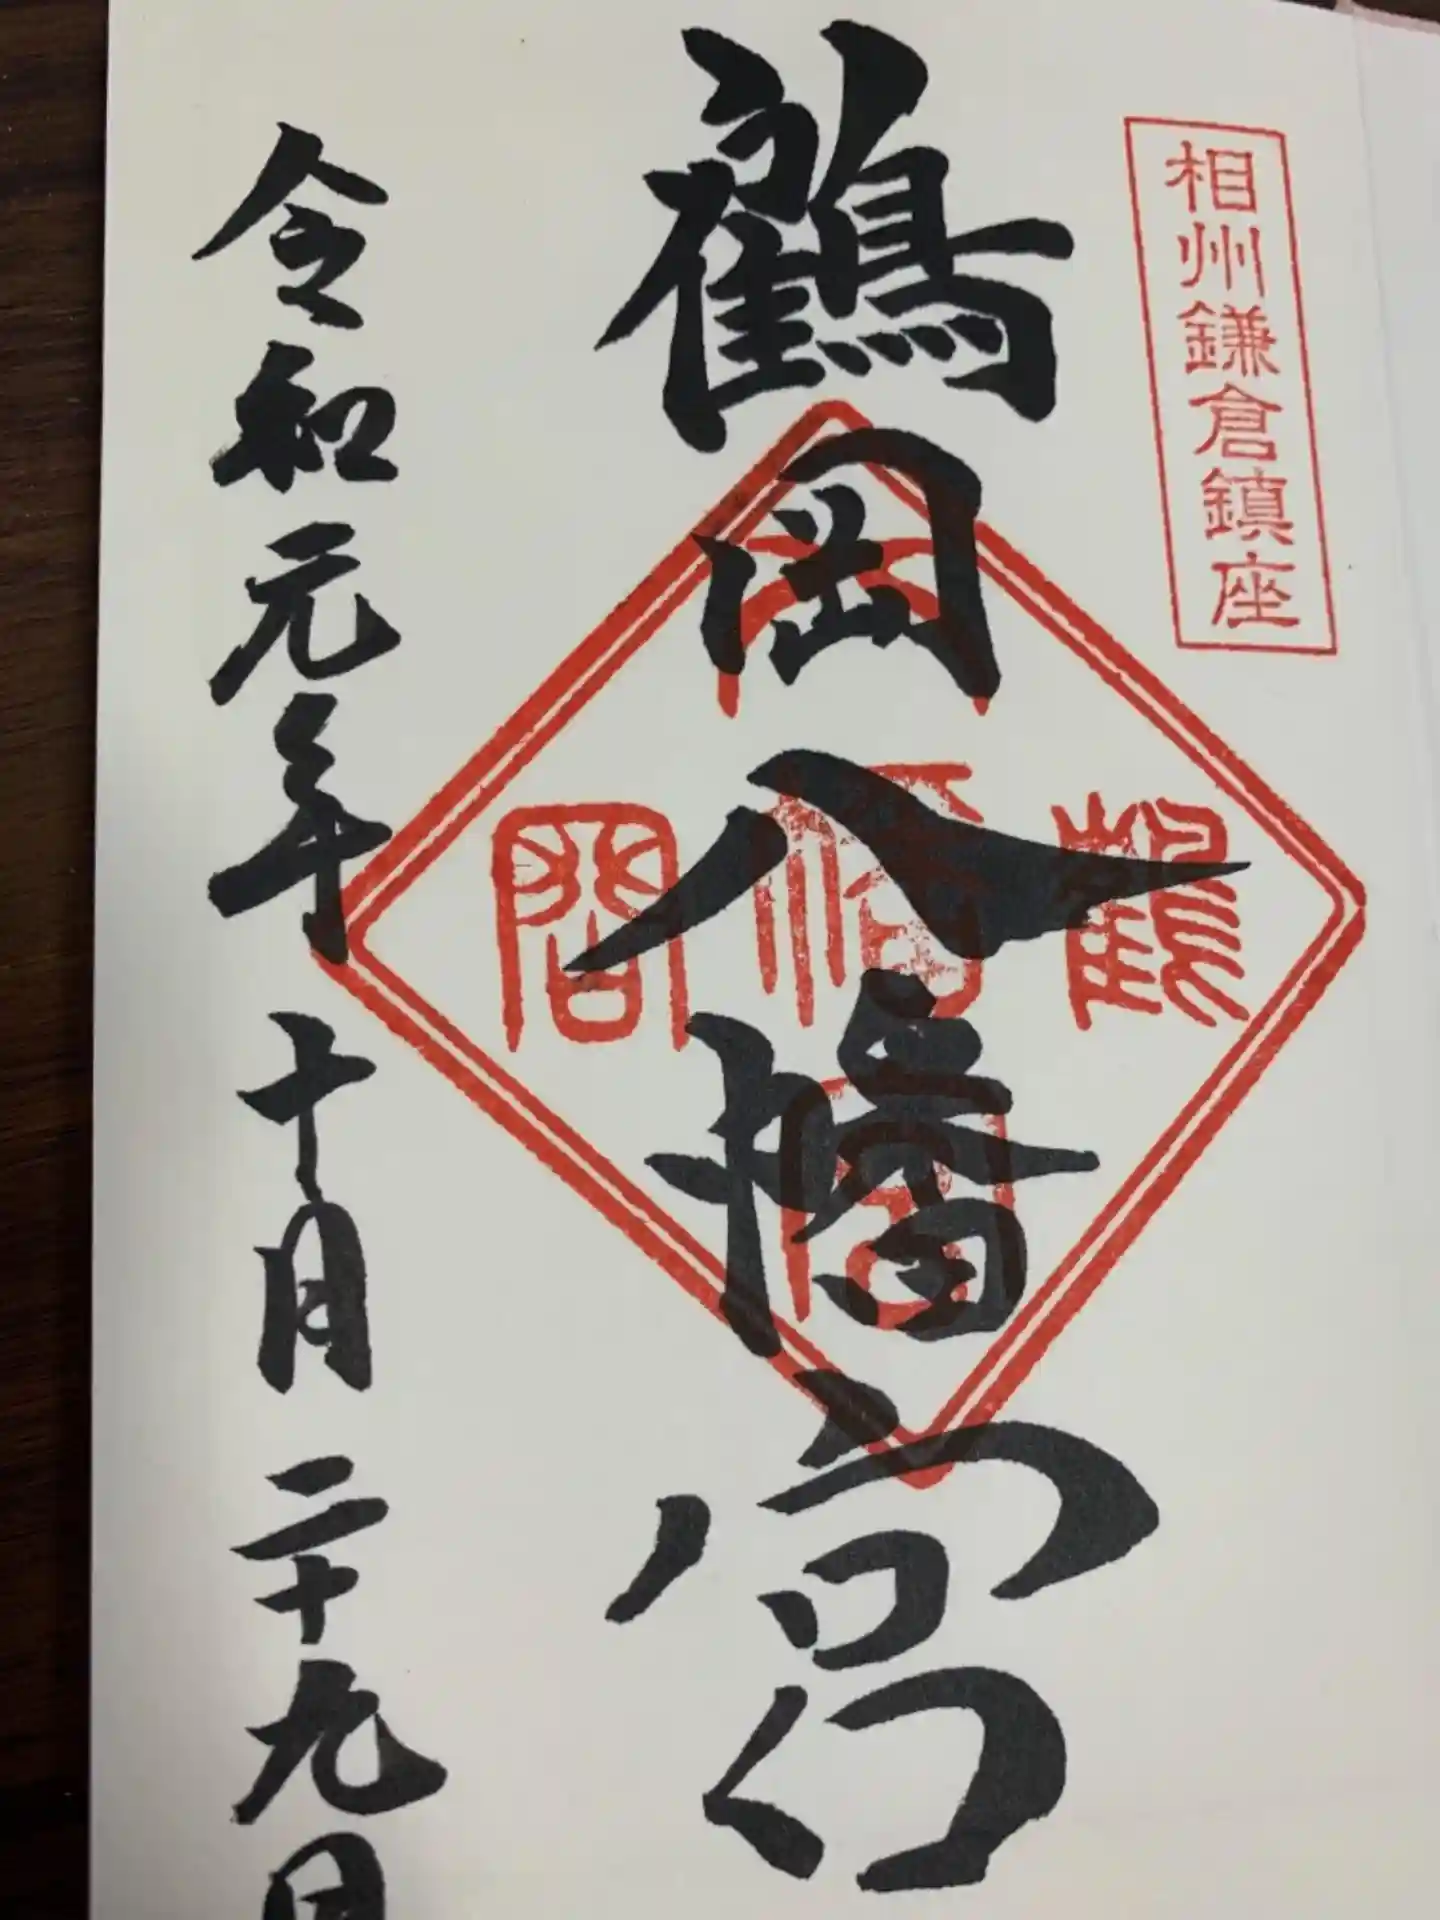 相州鎌倉鎮座
鶴岡八幡宮
令和元年十月二十九日